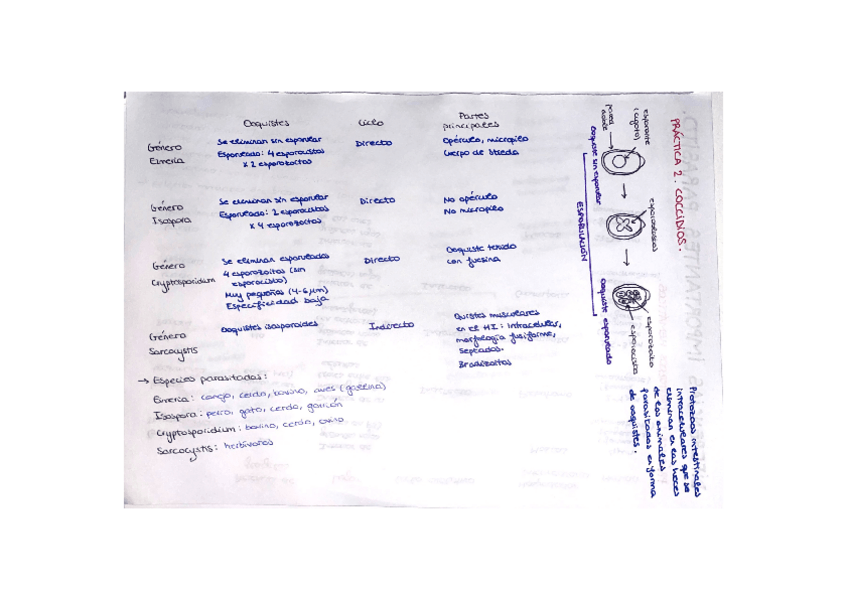 PRÁCTICA 2. COCCIDIOS.
Protozoos intestinales
intracelulares que se
eliminan en las heces
de los animales
parasitados en forma
de ooquistes.
esporonte
(cigoto)
pared
doble
ooquiste sin esporular
esporoblastos
ESPORULACIÓN
esporozoito
esporocisto
ooquiste esporulado
Ooquistes
Ciclo
Partes
principales
Género
Eimeria
Se eliminan sin esporular
Esporulado: 4 esporocistos
x 2 esporozoitos
Directo
Opérculo, micropilo
Cuerpo de Stieda
Género
Isospora
Se eliminan sin esporular
Esporulado: 2 esporocistos
x 4 esporozoitos
Directo
No opérculo
No micropilo
Género
Cryptosporidium
Se eliminan esporulados
4 esporozoitos (sin
esporocisto)
Muy pequeños (4-6 µm)
Especificidad baja
Directo
Ooquiste teñido
con fucsina
Género
Sarcocystis
Ooquistes isosporoides
Indirecto
Quistes musculares
en el HI: intracelular,
morfología fusiforme,
septados.
Bradizoitos
→ Especies parasitadas:
Eimeria: conejo, cerdo, bovino, aves (gallina)
Isospora: perro, gato, cerdo, gorrión
Cryptosporidium: bovino, cerdo, ovino
Sarcocystis: herbívoros